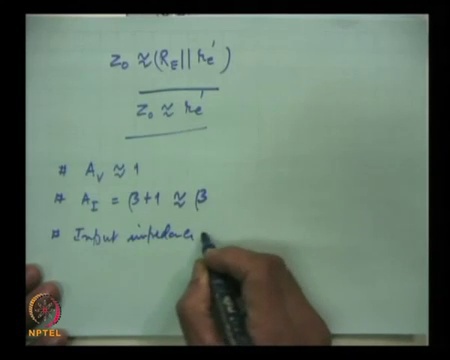 Z₀ ≈ (R_E || r_e')
Z₀ ≈ r_e'
# A_V ≈ 1
# A_I = β+1 ≈ β
# Input impedance
NPTEL